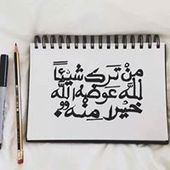 مَنْ تَرَكَ شَيْئاً
لله عَوَّضَهُ الله
خَيْراً مِنْهُ